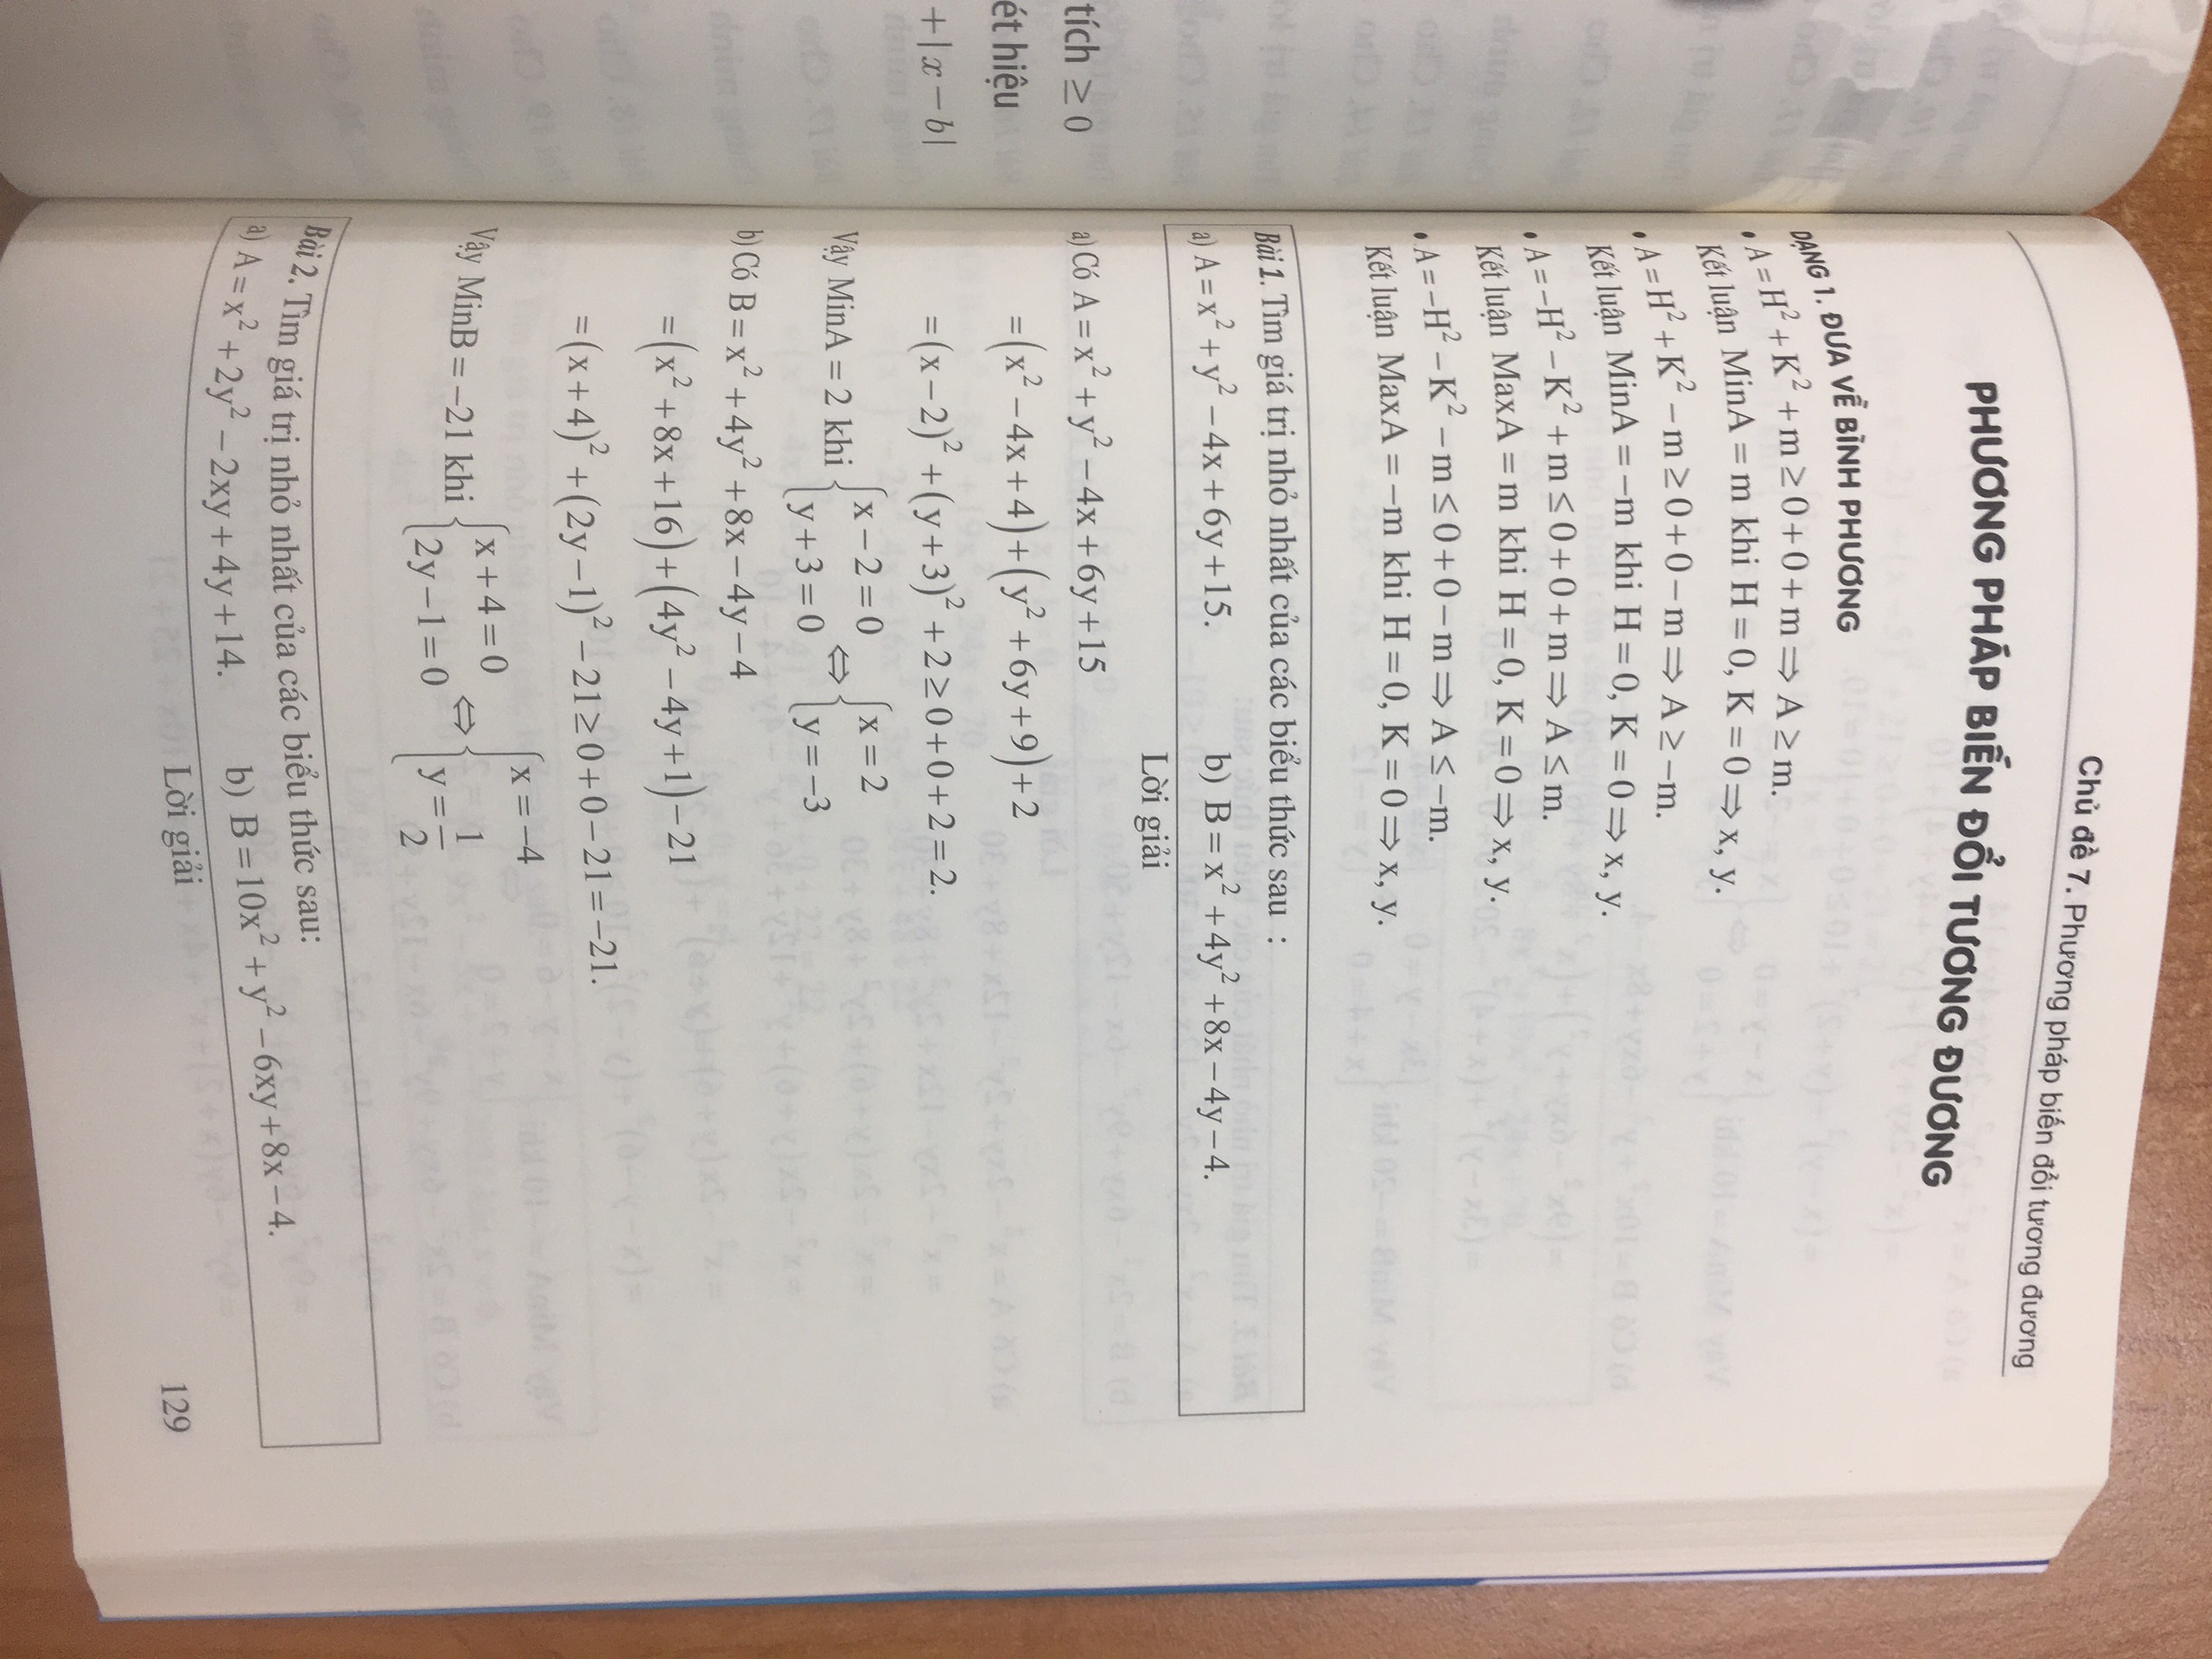 tích ≥ 0
ét hiệu
+ |x − b|
Chủ đề 7. Phương pháp biến đổi tương đương
PHƯƠNG PHÁP BIẾN ĐỔI TƯƠNG ĐƯƠNG
DẠNG 1. ĐƯA VỀ BÌNH PHƯƠNG
• A = H² + K² + m ≥ 0 + 0 + m ⇒ A ≥ m.
Kết luận MinA = m khi H = 0, K = 0 ⇒ x, y.
• A = H² + K² − m ≥ 0 + 0 − m ⇒ A ≥ −m.
Kết luận MinA = −m khi H = 0, K = 0 ⇒ x, y.
• A = −H² − K² + m ≤ 0 + 0 + m ⇒ A ≤ m.
Kết luận MaxA = m khi H = 0, K = 0 ⇒ x, y.
• A = −H² − K² − m ≤ 0 + 0 − m ⇒ A ≤ −m.
Kết luận MaxA = −m khi H = 0, K = 0 ⇒ x, y.
Bài 1. Tìm giá trị nhỏ nhất của các biểu thức sau :
a) A = x² + y² − 4x + 6y + 15. b) B = x² + 4y² + 8x − 4y − 4.
Lời giải
a) Có A = x² + y² − 4x + 6y + 15
= (x² − 4x + 4) + (y² + 6y + 9) + 2
= (x − 2)² + (y + 3)² + 2 ≥ 0 + 0 + 2 = 2.
Vậy MinA = 2 khi { x − 2 = 0 ⇔ { x = 2
y + 3 = 0 y = −3
b) Có B = x² + 4y² + 8x − 4y − 4
= (x² + 8x + 16) + (4y² − 4y + 1) − 21
= (x + 4)² + (2y − 1)² − 21 ≥ 0 + 0 − 21 = −21.
Vậy MinB = −21 khi { x + 4 = 0 ⇔ { x = −4
2y − 1 = 0 y = 1/2
Bài 2. Tìm giá trị nhỏ nhất của các biểu thức sau:
a) A = x² + 2y² − 2xy + 4y + 14. b) B = 10x² + y² − 6xy + 8x − 4.
Lời giải
129